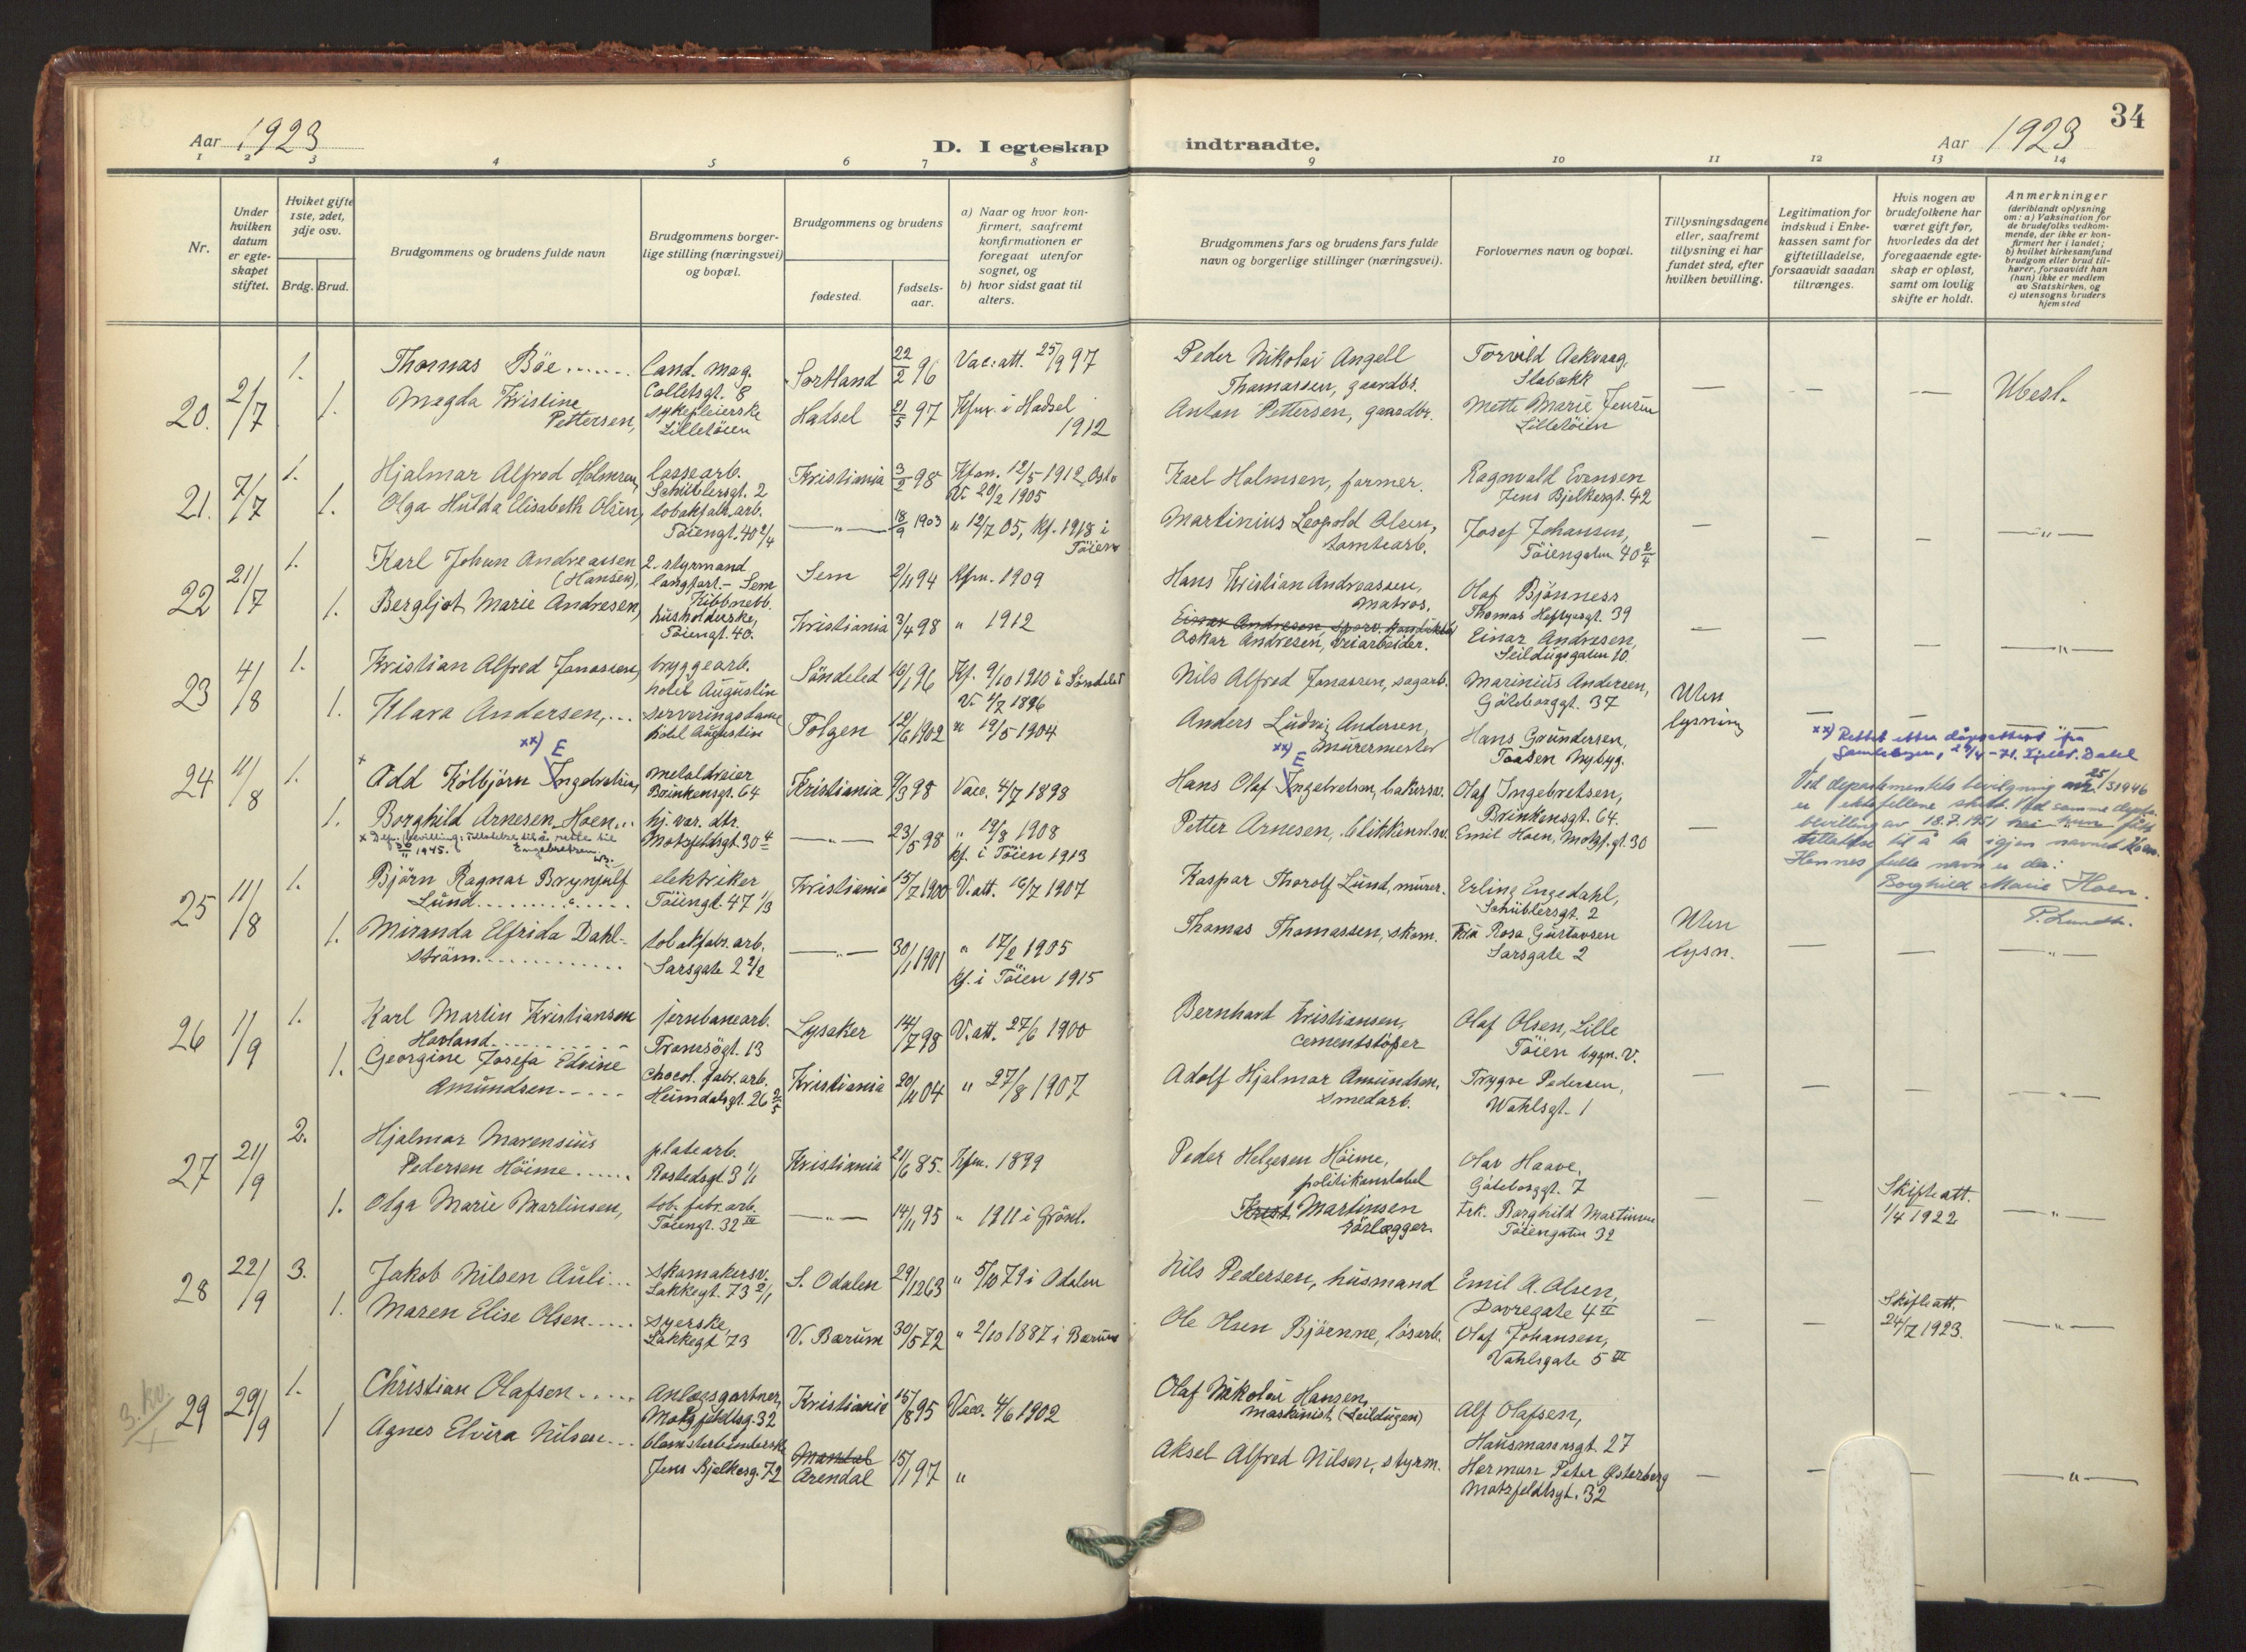 34
Aar 1923
D. I egteskap indtraadte.
Aar 1923
1 2 3 4 5 6 7 8 9 10 11 12 13 14
Nr.
Under hvilken datum er egteskapet stiftet.
Hvilket gifte 1ste, 2det, 3dje osv.
Brdg. Brud.
Brudgommens og brudens fulde navn
Brudgommens borgerlige stilling (næringsvei) og bopæl.
Brudgommens og brudens
fødested.
fødselsaar.
a) Naar og hvor konfirmert, saafremt konfirmationen er foregaat utenfor sognet, og
b) hvor sidst gaat til alters.
Brudgommens fars og brudens fars fulde navn og borgerlige stillinger (næringsvei).
Forlovernes navn og bopæl.
Tillysningsdagene eller, saafremt tillysning ei har fundet sted, efter hvilken bevilling.
Legitimation for indskud i Enkekassen samt for giftetilladelse, forsaavidt saadan tiltrænges.
Hvis nogen av brudefolkene har været gift før, hvorledes da det foregaaende egteskap er opløst, samt om lovlig skifte er holdt.
Anmerkninger
(deriblandt oplysning om: a) Vaksination for de brudefolks vedkommende, der ikke er konfirmert her i landet; b) hvilket kirkesamfund brudgom eller brud tilhører, forsaavidt han (hun) ikke er medlem av Statskirken, og c) utensogns bruders hjemsted
20. 2/7 1. Thomas Böe Cand. mag. Colletsgt. 8 Sortland 22/2 96 Vac. att. 25/9 97 Peder Nikolai Angell Thomassen, gaardbr. Torvild Aakvaag, Stabækk — — — Ubesl.
1. Magda Kristine Pettersen, sykepleierske Lilletöien Hadsel 21/5 97 Kfm. i Hadsel 1912 Anton Pettersen, gaardbr. Mette Marie Jensen Lilletöien
21. 7/7 1. Hjalmar Alfred Holmsen, lossearb. Schüblersgt. 2 Kristiania 3/2 98 Kfm. 12/5 1912, Oslo V. 20/2 1905 Karl Holmsen, former. Ragnvald Evensen Jens Bjelkesgt. 42
1. Olga Hulda Elisabeth Olsen, tobakfabr. arb. Töiengt. 40 2/4 —"— 18/9 1903 " 12/7 05, kf. 1918 i Töien Martinius Leopold Olsen, tomtearb. Josef Johansen, Töiengaten 40 2/4 — — — —"—
22 21/7 1. Karl Johan Andreassen (Hansen), 2. styrmand langfart - Sem Sem 2/11 94 Kfm. 1909 Hans Kristian Andreassen, matros. Olaf Bjönness Thomas Heftyesgt. 39
1. Bergljot Marie Andresen, husholderske, Töiengt. 40. Kristiania 3/4 98 " 1912 Einar Andresen, sporv. konduktör Oskar Andresen, veiarbeider. Einar Andresen, Seildugsgaten 10. — — — —"—
23 4/8 1. Kristian Alfred Jonassen, bryggearb. hotel Augustin Söndeled 16/1 96 Kf. 9/10 1910 i Söndeled V. 4/7 1896 Nils Alfred Jonassen, sagarb. Marinius Andersen, Göteborggt. 37 Uten lysning
1. Klara Andersen, serveringsdame hotel Augustin Tolgen 12/6 1902 " 19/5 1904 Anders Ludvig Andersen, murermester Hans Gundersen, Taasen Nybyg. — — —"—
24 11/8 1. x Odd Kolbjörn Ingebretsen, xx) E metaldreier Brinkensgt. 64 Kristiania 9/3 98 Vacc. 4/7 1898 Hans Olaf Ingebretsen, xx) E bakersv. Olaf Ingebretsen, Brinkensgt. 64.
1. Borghild Arnesen Hoen hj. vær. dtr. Motzfeldtsgt. 30 4 —"— 23/5 98 " 12/8 1908 kf. i Töien 1913 Petter Arnesen, blikkensl. sv. Emil Hoen, Motzf. gt. 30 —
x Dep. bevilling: Tilladelse til å rette til Engebretsen 1945.
xx) Rettet etter dåpsattest fra 29/4-71. Dahl
Ved departementets bevilgning av 25/3 1946 er ektefellene skilt. Ved samme departs. bevilling av 18.7.1951 har hun fått tillatelse til å ta igjen navnet Hoen. Hennes fulle navn er da: Borghild Marie Hoen.
25 11/8 1. Björn Ragnar Brynjulf Lund elektriker Töiengt. 47 1/3 Kristiania 15/7 1900 V. att. 16/7 1907 Kaspar Thorolf Lund, murer. Erling Engedahl, Schüblersgt. 2 Uten lysn.
1. Miranda Elfrida Dahlström tobakfabr. arb. Sarsgate 2 2/2 —"— 30/1 1901 " 17/2 1905 kf. i Töien 1915 Thomas Thomassen, skom. Rosa Gustavsen Sarsgate 2 — — —"—
26 1/9 1. Karl Martin Kristiansen Havland jernbanearb. Tromsögt. 13 Lysaker 14/7 98 V. att. 27/6 1900 Bernhard Kristiansen, cementstöper Olaf Olsen, Lille Töien bygn. V.
1. Georgine Josefa Edvine Amundsen chocol. fabr. arb. Heimdalsgt. 26 2/5 Kristiania 20/11 04 " 27/8 1907 Adolf Hjalmar Amundsen, smedarb. Trygve Pedersen, Wahlsgt. 1 — — — —"—
27 21/9 2. Hjalmar Marensius Pedersen Höime platearb. Rostedsgt 3 1/1 Kristiania 21/6 85. Kfm. 1899 Peder Helgesen Höime, politikonstabel Olav Haave, Göteborggt. 7
1. Olga Marie Martinsen, tob. fabr. arb. Töiengt. 32 III —"— 14/11 95 " 1911 i Grönl. Krist. Martinsen rörlægger. Frk. Borghild Martinsen Töiengaten 32 — — Skifteatt. 1/4 1922 —"—
28 22/9 3. Jakob Nilsen Auli skomakersv. Lakkegt. 73 2/1 S. Odalen 29/12 63 " 5/10 79 i Odalen Nils Pedersen, husmand Emil A. Olsen, Dovregate 4 II
1. Maren Elise Olsen syerske, Lakkegt 73 V. Bærum 30/5 72 " 2/10 1887 i Bærum Ole Olsen Björnne, lösarb. Olaf Johansen, Vahlsgate 5 III — — Skifteatt. 24/7 1923. —"—
3. kv. 29 29/9 1. Christian Olafsen Anlægsgartner, Motzfeldtsg. 32 Kristiania 15/8 95 Vacc. 4/6 1902 Olaf Nikolai Hansen, maskinist (Seildugen) Alf Olafsen, Hausmannsgt. 27
1 Agnes Elvira Nilsen blomsterbinderske Jens Bjelkesg. 72 Mandal Arendal 15/1 97 " Aksel Alfred Nilsen, styrm. Herman Peter Østerberg Motzfeldtsgt. 32 — — — —"—